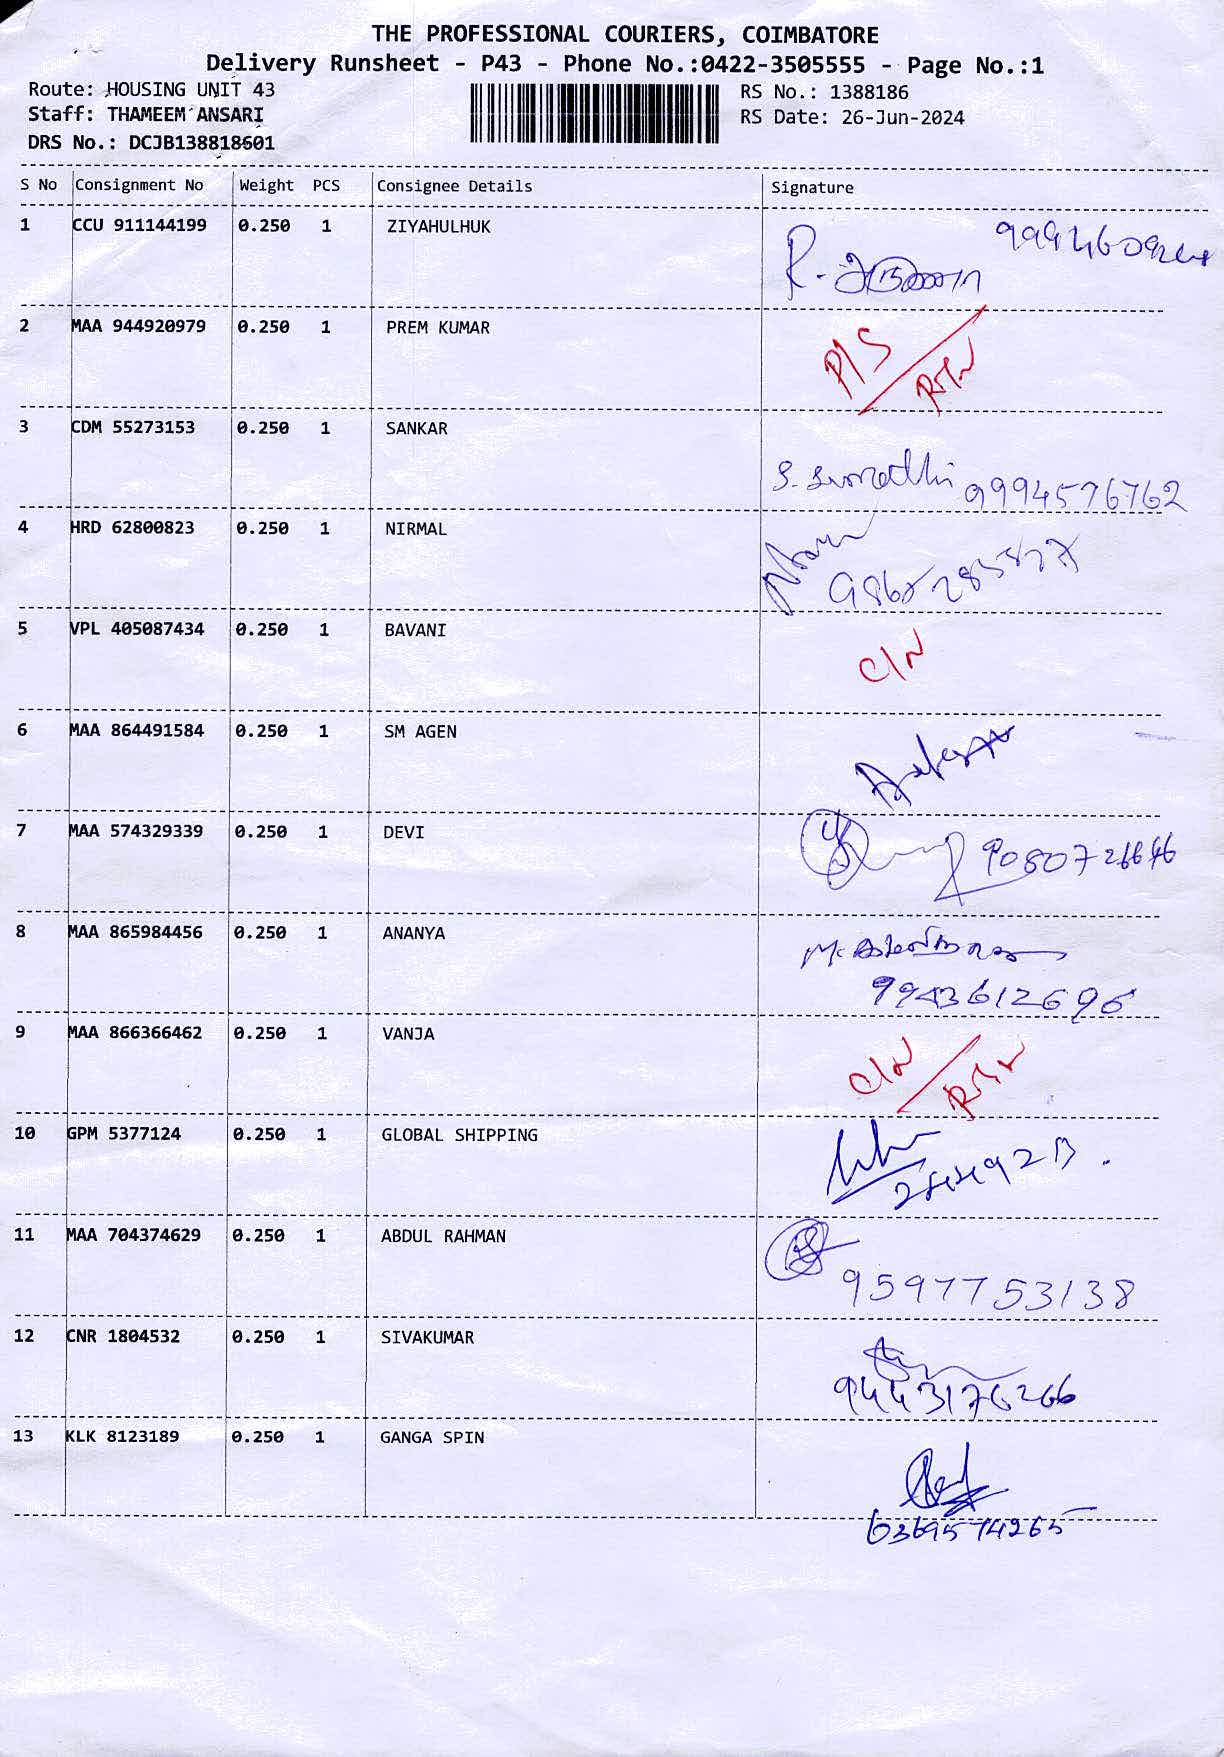 THE PROFESSIONAL COURIERS, COIMBATORE
Delivery Runsheet - P43 - Phone No.:0422-3505555 - Page No.:1
Route: HOUSING UNIT 43
Staff: THAMEEM ANSARI
DRS No.: DCJB138818601
RS No.: 1388186
RS Date: 26-Jun-2024
S No Consignment No Weight PCS Consignee Details Signature
1 CCU 911144199 0.250 1 ZIYAHULHUK
2 MAA 944920979 0.250 1 PREM KUMAR P/S
3 CDM 55273153 0.250 1 SANKAR S. Sumathi 9994576762
4 HRD 62800823 0.250 1 NIRMAL
5 VPL 405087434 0.250 1 BAVANI C/N
6 MAA 864491584 0.250 1 SM AGEN
7 MAA 574329339 0.250 1 DEVI
8 MAA 865984456 0.250 1 ANANYA
9943612696
9 MAA 866366462 0.250 1 VANJA C/N
10 GPM 5377124 0.250 1 GLOBAL SHIPPING
11 MAA 704374629 0.250 1 ABDUL RAHMAN
9597753138
12 CNR 1804532 0.250 1 SIVAKUMAR
9443176266
13 KLK 8123189 0.250 1 GANGA SPIN
6369574265